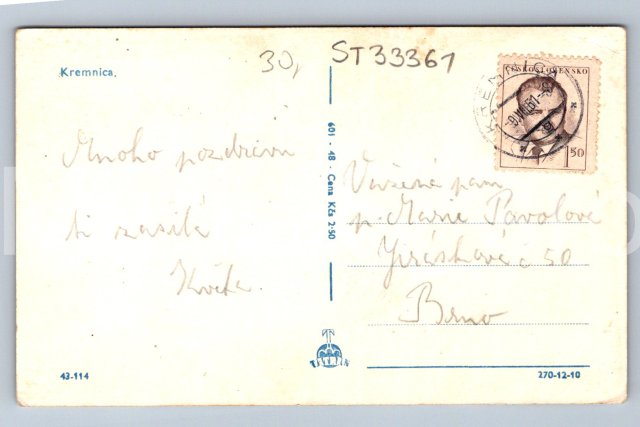 30,
ST33361
Kremnica.
ČESKOSLOVENSKO
1 50
Mnoho pozdravů
ti zasílá
Květa.
601 - 48 - Cena Kčs 2·50
Vážená paní
p. Marie Pavolová
Jiráskova č 50
Brno
43-114
270-12-10